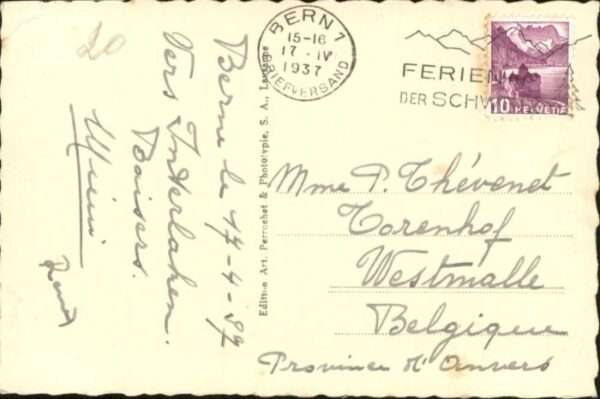 20
Berne le 17-4-37
Vers Interlaken.
Baisers.
Mimi
Edition Art. Perrochet & Phototypie, S. A., Lausanne
BERN 1
15-16
17·IV
1937
BRIEFVERSAND
FERIEN
DER SCHW
10 HELVETIA
Mme P. Thévenet
Torenhof
Westmalle
Belgique
Province d'Anvers